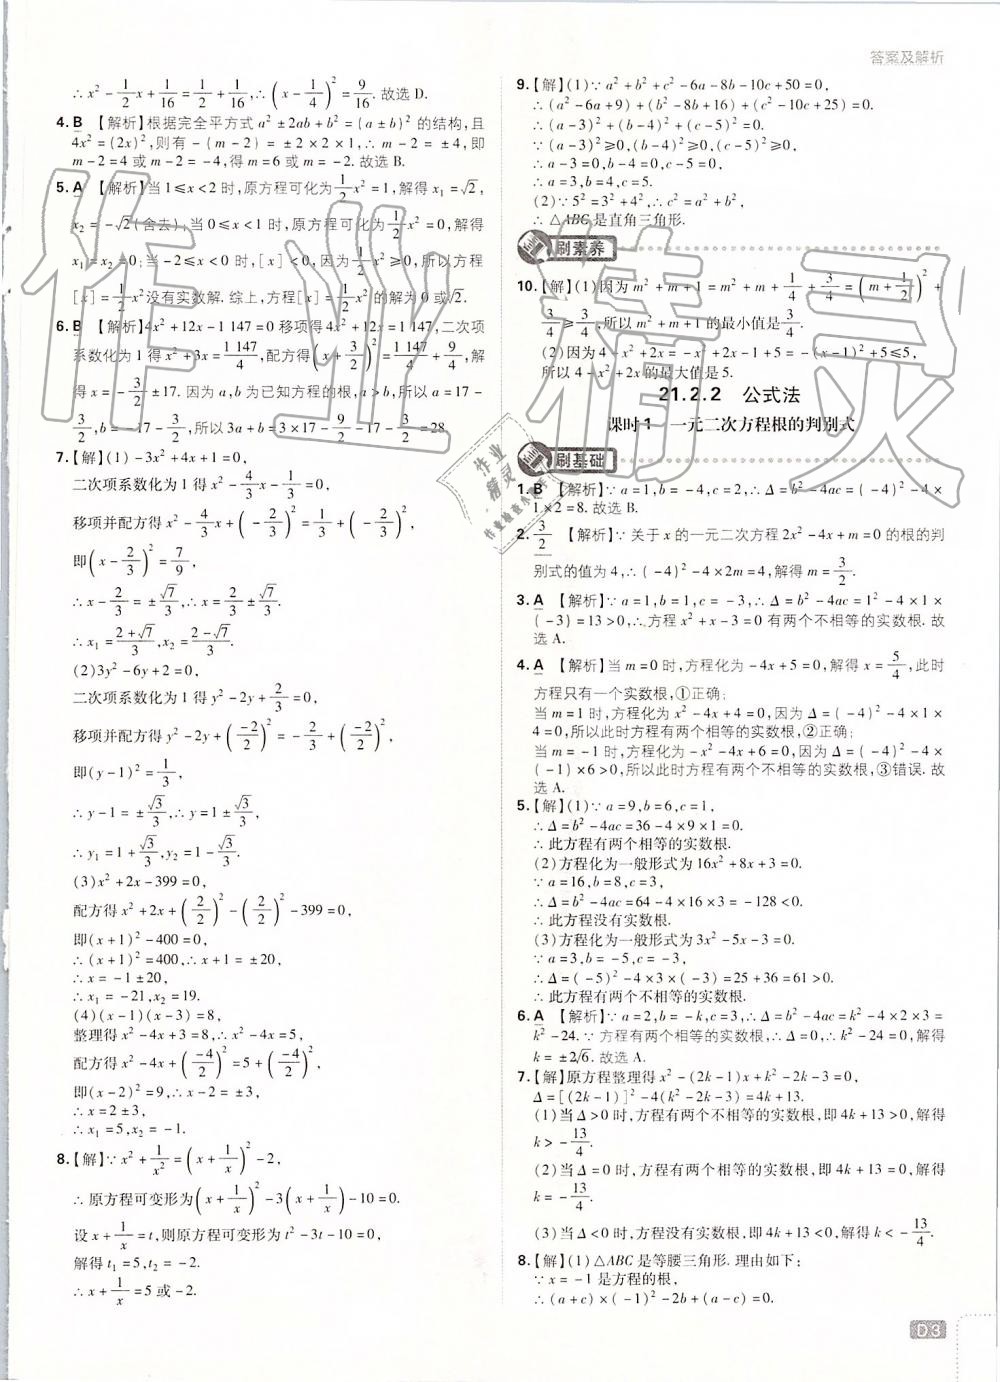 答案及解析
∴ x² - 1/2 x + 1/16 = 1/2 + 1/16, ∴ (x - 1/4)² = 9/16. 故选 D.
4. B 【解析】根据完全平方式 a² ± 2ab + b² = (a ± b)² 的结构, 且
4x² = (2x)², 则有 -(m-2) = ±2×2×1, ∴ m-2 = ±4, 即
m-2=4 或 m-2=-4, 得 m=6 或 m=-2. 故选 B.
5. A 【解析】当 1≤x<2 时, 原方程可化为 1/2 x² = 1, 解得 x₁ = √2,
x₂ = -√2(舍去); 当 0≤x<1 时, 原方程可化为 1/2 x² = 0, 解得
x₁ = x₂ = 0; 当 -2≤x<0 时, [x]<0, 因为 1/2 x²≥0, 所以方程
[x] = 1/2 x² 没有实数解. 综上, 方程[x] = 1/2 x² 的解为 0 或√2.
6. B 【解析】4x²+12x-1 147=0 移项得 4x²+12x=1 147, 二次项
系数化为 1 得 x²+3x = 1 147/4, 配方得 (x + 3/2)² = 1 147/4 + 9/4, 解
得 x = -3/2 ± 17. 因为 a,b 为已知方程的根, a>b, 所以 a = -3/2 +
17, b = -17 - 3/2, 所以 3a+b = 3×17 - 9/2 - 17 - 3/2 = 28.
7. 【解】(1) -3x²+4x+1=0,
二次项系数化为 1 得 x² - 4/3 x - 1/3 = 0,
移项并配方得 x² - 4/3 x + (-2/3)² = 1/3 + (-2/3)²,
即 (x - 2/3)² = 7/9,
∴ x - 2/3 = ± √7/3, ∴ x = 2/3 ± √7/3.
∴ x₁ = (2+√7)/3, x₂ = (2-√7)/3.
(2) 3y²-6y+2=0,
二次项系数化为 1 得 y²-2y+2/3=0,
移项并配方得 y²-2y+(-2/2)² = -2/3 + (-2/2)²,
即 (y-1)² = 1/3,
∴ y-1 = ± √3/3, ∴ y = 1 ± √3/3,
∴ y₁ = 1+√3/3, y₂ = 1-√3/3.
(3) x²+2x-399=0,
配方得 x²+2x+(2/2)²-(2/2)²-399=0,
即(x+1)²-400=0,
∴ (x+1)²=400, ∴ x+1=±20,
∴ x=-1±20,
∴ x₁=-21, x₂=19.
(4) (x-1)(x-3)=8,
整理得 x²-4x+3=8, ∴ x²-4x=5,
配方得 x²-4x+(-4/2)²=5+(-4/2)²,
即(x-2)²=9, ∴ x-2=±3,
∴ x=2±3,
∴ x₁=5, x₂=-1.
8. 【解】∵ x²+1/x² = (x+1/x)²-2,
∴ 原方程可变形为 (x+1/x)²-3(x+1/x)-10=0.
设 x+1/x=t, 则原方程可变形为 t²-3t-10=0,
解得 t₁=5, t₂=-2.
∴ x+1/x=5 或-2.
9. 【解】(1) ∵ a²+b²+c²-6a-8b-10c+50=0,
∴ (a²-6a+9)+(b²-8b+16)+(c²-10c+25)=0.
∴ (a-3)²+(b-4)²+(c-5)²=0.
∵ (a-3)²≥0, (b-4)²≥0, (c-5)²≥0,
∴ a-3=0, b-4=0, c-5=0.
∴ a=3, b=4, c=5.
(2) ∵ 5²=3²+4², ∴ c²=a²+b²,
∴ △ABC 是直角三角形.
刷素养
10. 【解】(1) 因为 m²+m+1=m²+m+1/4+3/4=(m+1/2)²+
3/4≥3/4, 所以 m²+m+1 的最小值是3/4.
(2) 因为 4-x²+2x=-x²+2x-1+5=-(x-1)²+5≤5,
所以 4-x²+2x 的最大值是 5.
21.2.2 公式法
课时1 一元二次方程根的判别式
刷基础
1. B 【解析】∵ a=1, b=-4, c=2, ∴ Δ=b²-4ac=(-4)²-4×
1×2=8. 故选 B.
2. 3/2 【解析】∵ 关于 x 的一元二次方程 2x²-4x+m=0 的根的判
别式的值为 4, ∴ (-4)²-4×2m=4, 解得 m=3/2.
3. A 【解析】∵ a=1, b=1, c=-3, ∴ Δ=b²-4ac=1²-4×1×
(-3)=13>0, ∴ 方程 x²+x-3=0 有两个不相等的实数根. 故
选 A.
4. A 【解析】当 m=0 时, 方程化为 -4x+5=0, 解得 x=5/4, 此时
方程只有一个实数根, ①正确;
当 m=1 时, 方程化为 x²-4x+4=0, 因为 Δ=(-4)²-4×1×
4=0, 所以此时方程有两个相等的实数根, ②正确;
当 m=-1 时, 方程化为-x²-4x+6=0, 因为 Δ=(-4)²-4×
(-1)×6>0, 所以此时方程有两个不相等的实数根, ③错误. 故
选 A.
5. 【解】(1) ∵ a=9, b=6, c=1,
∴ Δ=b²-4ac=36-4×9×1=0.
∴ 此方程有两个相等的实数根.
(2) 方程化为一般形式为 16x²+8x+3=0.
∵ a=16, b=8, c=3,
∴ Δ=b²-4ac=64-4×16×3=-128<0.
∴ 此方程没有实数根.
(3) 方程化为一般形式为 3x²-5x-3=0.
∵ a=3, b=-5, c=-3,
∴ Δ=(-5)²-4×3×(-3)=25+36=61>0.
∴ 此方程有两个不相等的实数根.
6. A 【解析】∵ a=2, b=-k, c=3, ∴ Δ=b²-4ac=k²-4×2×3=
k²-24. ∵ 方程有两个相等的实数根, ∴ Δ=0, ∴ k²-24=0, 解得
k=±2√6. 故选 A.
7. 【解】原方程整理得 x²-(2k-1)x+k²-2k-3=0,
Δ=[(2k-1)]²-4(k²-2k-3)=4k+13.
(1) 当 Δ>0 时, 方程有两个不相等的实数根, 即 4k+13>0, 解得
k>-13/4.
(2) 当 Δ=0 时, 方程有两个相等的实数根, 即 4k+13=0, 解得
k=-13/4.
(3) 当 Δ<0 时, 方程没有实数根, 即 4k+13<0, 解得 k<-13/4.
8. 【解】(1) △ABC 是等腰三角形. 理由如下:
∵ x=-1 是方程的根,
∴ (a+c)×(-1)²-2b+(a-c)=0.
D3
作业精灵